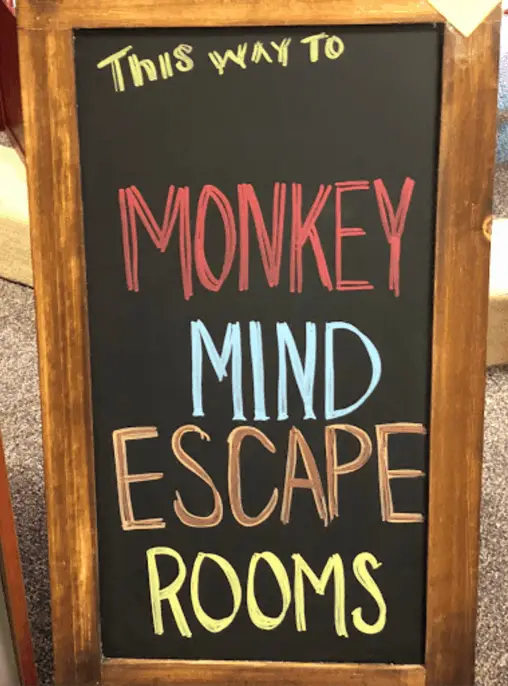 THIS WAY TO
MONKEY
MIND
ESCAPE
ROOMS